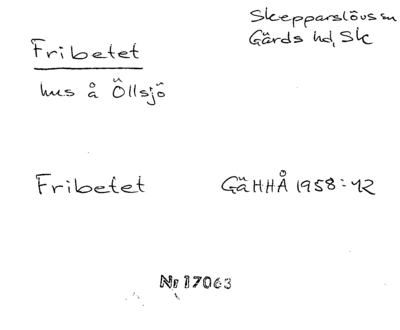 Skepparslövs sn
Gärds hd, Sk
Fribetet
hus å Öllsjö
Fribetet GäHHÅ 1958:42
Nr 17063